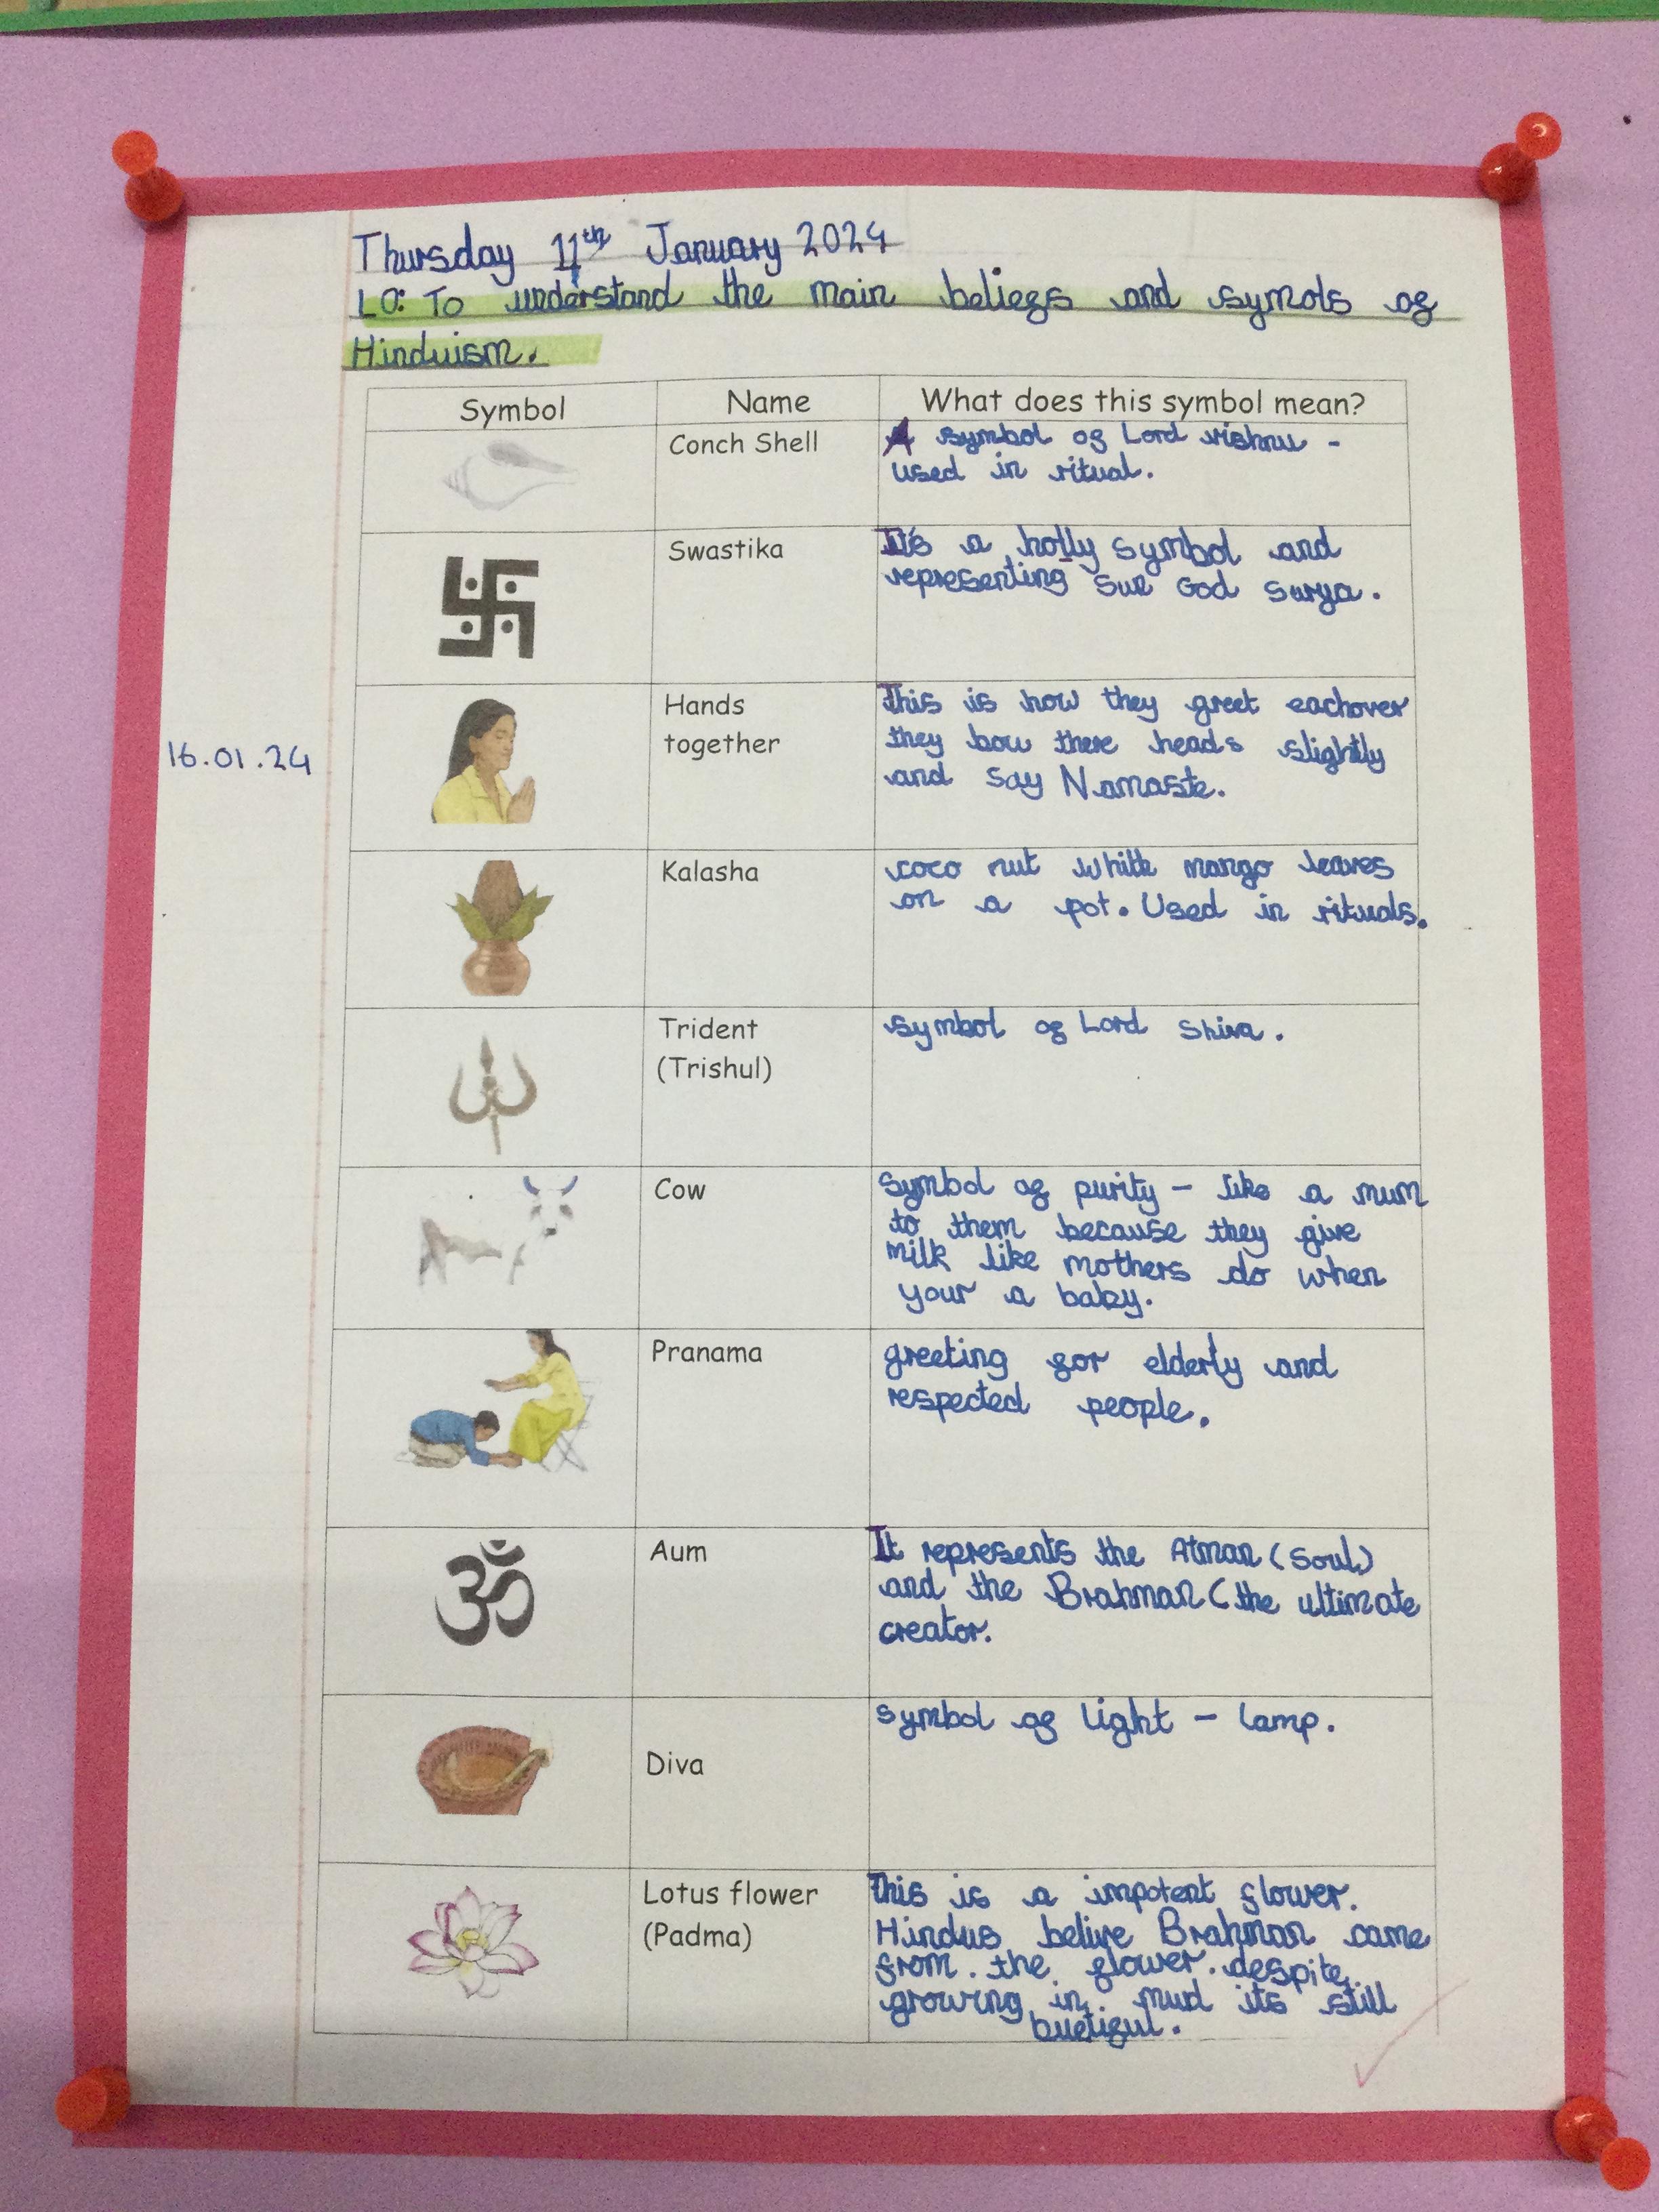 Thursday 11th January 2024
LO: To understand the main beliefs and symols of
Hinduism.
Symbol Name What does this symbol mean?
Conch Shell A symbol of Lord vishnu -
used in ritual.
Swastika It's a holly symbol and
representing Sun God Surya.
Hands
together
This is how they greet eachover
they bow there heads slightly
and say Namaste.
16.01.24
Kalasha coco nut whith mango leaves
on a pot. Used in rituals.
Trident
(Trishul)
symbol of Lord Shiva.
Cow symbol of purity - like a mum
to them because they give
milk like mothers do when
your a baby.
Pranama greeting for elderly and
respected people.
Aum It represents the Atman (Soul)
and the Brahman (the ultimate
creator.
Diva symbol of light - lamp.
Lotus flower
(Padma)
This is a impotent flower.
Hindus belive Brahman came
from. the flower. despite
growing in. mud its still
buetiful.